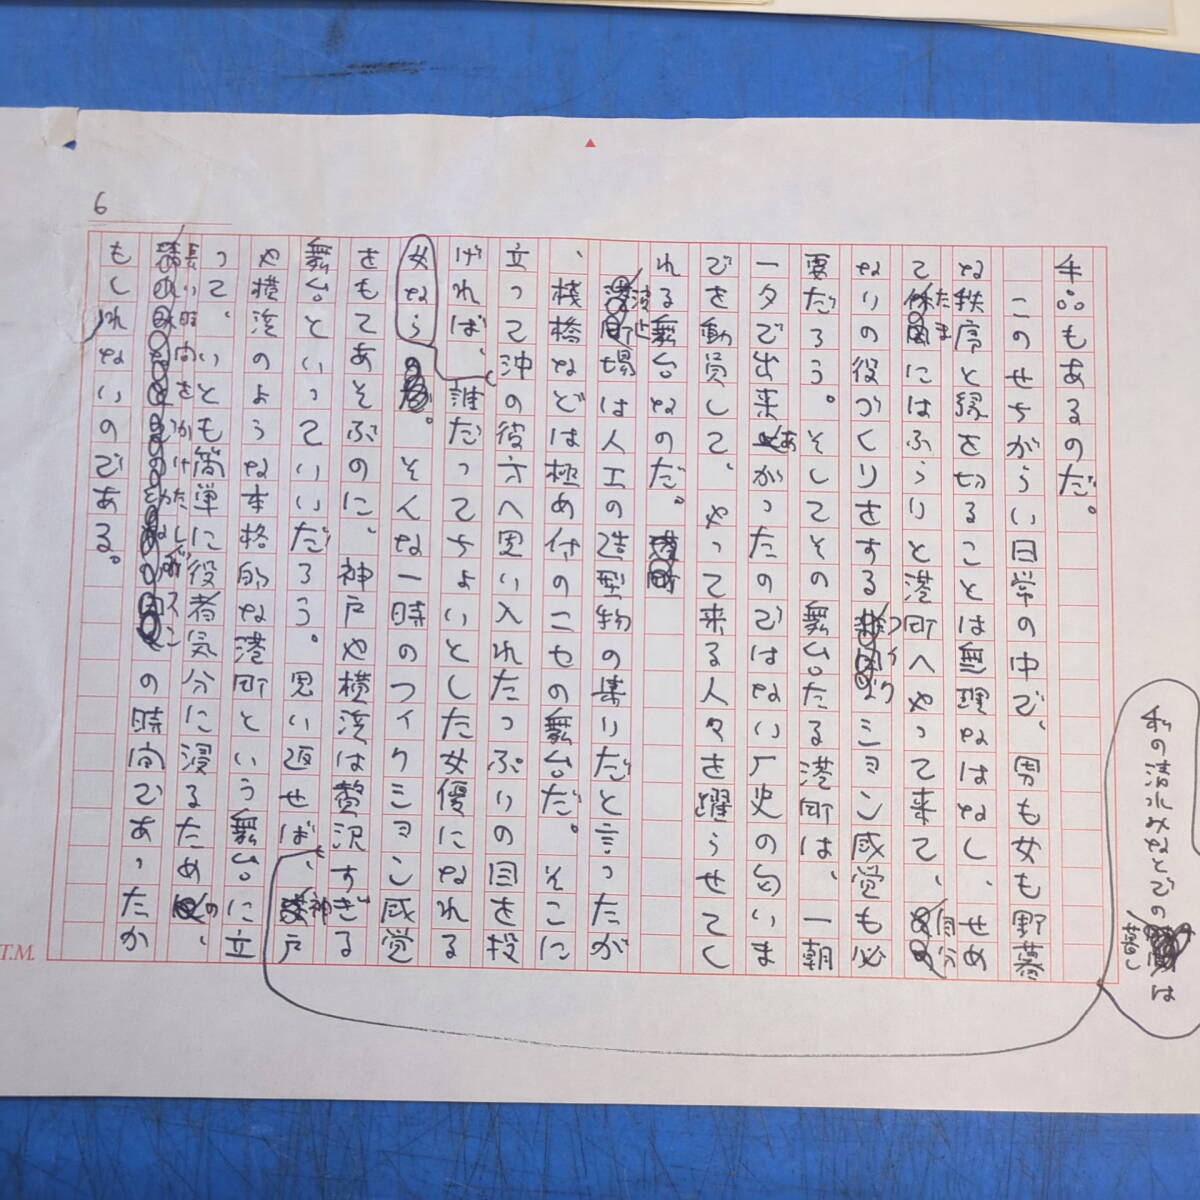 6
もしれないのである。
私の清水みなとでの
暮し
は
チ∴もあるのだ。
このせちがらい日常の中で、男も女も野暮
な秩序と縁を切ることは無理なはなし、せめ
てたまにはふらりと港町へやって来て、自分
なりの役づくりをするフィクション感覚も必
要だろう。そしてその舞台たる港町は、一朝
一夕で出来あがったのではない厂史の匂いま
でを動員して、やって来る人々を躍らせてく
れる舞台なのだ。
波止場は人工の造型物の集りだと言ったが
、桟橋などは極め付のこせの舞台だ。そこに
立って沖の彼方へ思い入れたっぷりの目を投
げれば、女なら誰だってちょいとした女優になれる
。そんな一時のフィクション感覚
をもてあそぶのに、神戸や横浜は贅沢すぎる
舞台といっていいだろう。思い返せば、神戸
や横浜のような本格的な港町という舞台に立
って、いとも簡単に役者気分に浸るための、
長い時間をかけた
の時間であったか
T.M.